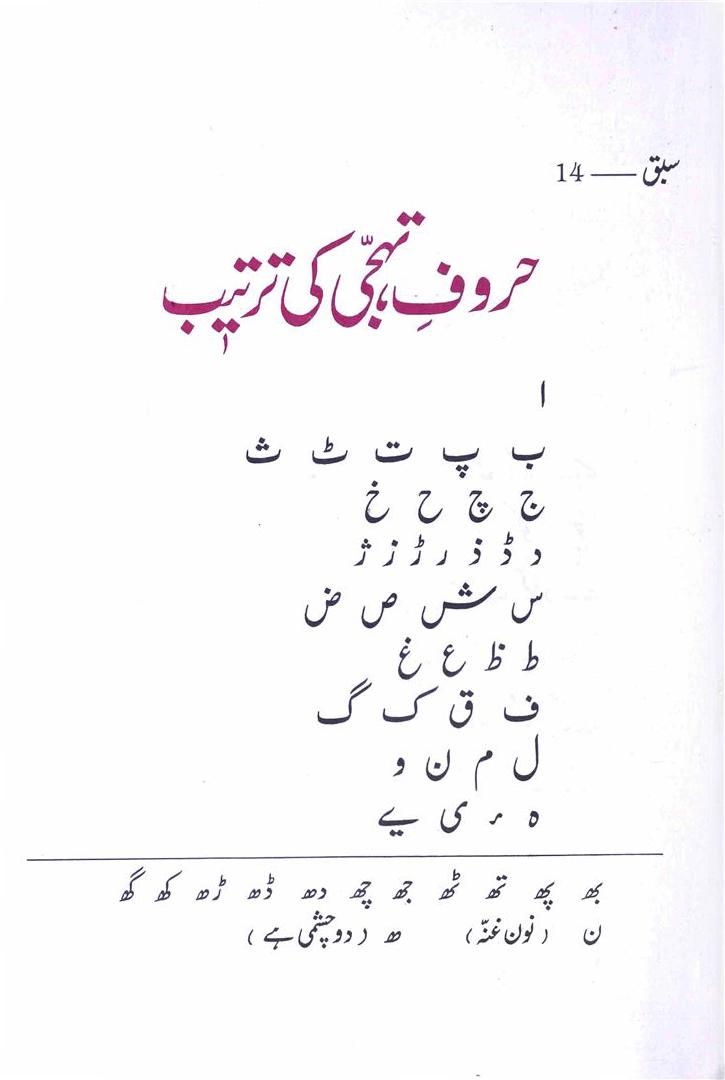 سبق — 14
حروفِ تہجّی کی ترتیب
ا
ب پ ت ٹ ث
ج چ ح خ
د ڈ ذ ر ڑ ز ژ
س ش ص ض
ط ظ ع غ
ف ق ک گ
ل م ن و
ہ ء ی ے
بھ پھ تھ ٹھ جھ چھ دھ ڈھ ڑھ کھ گھ
ن (نون غنّہ) ھ (دو چشمی ہے)